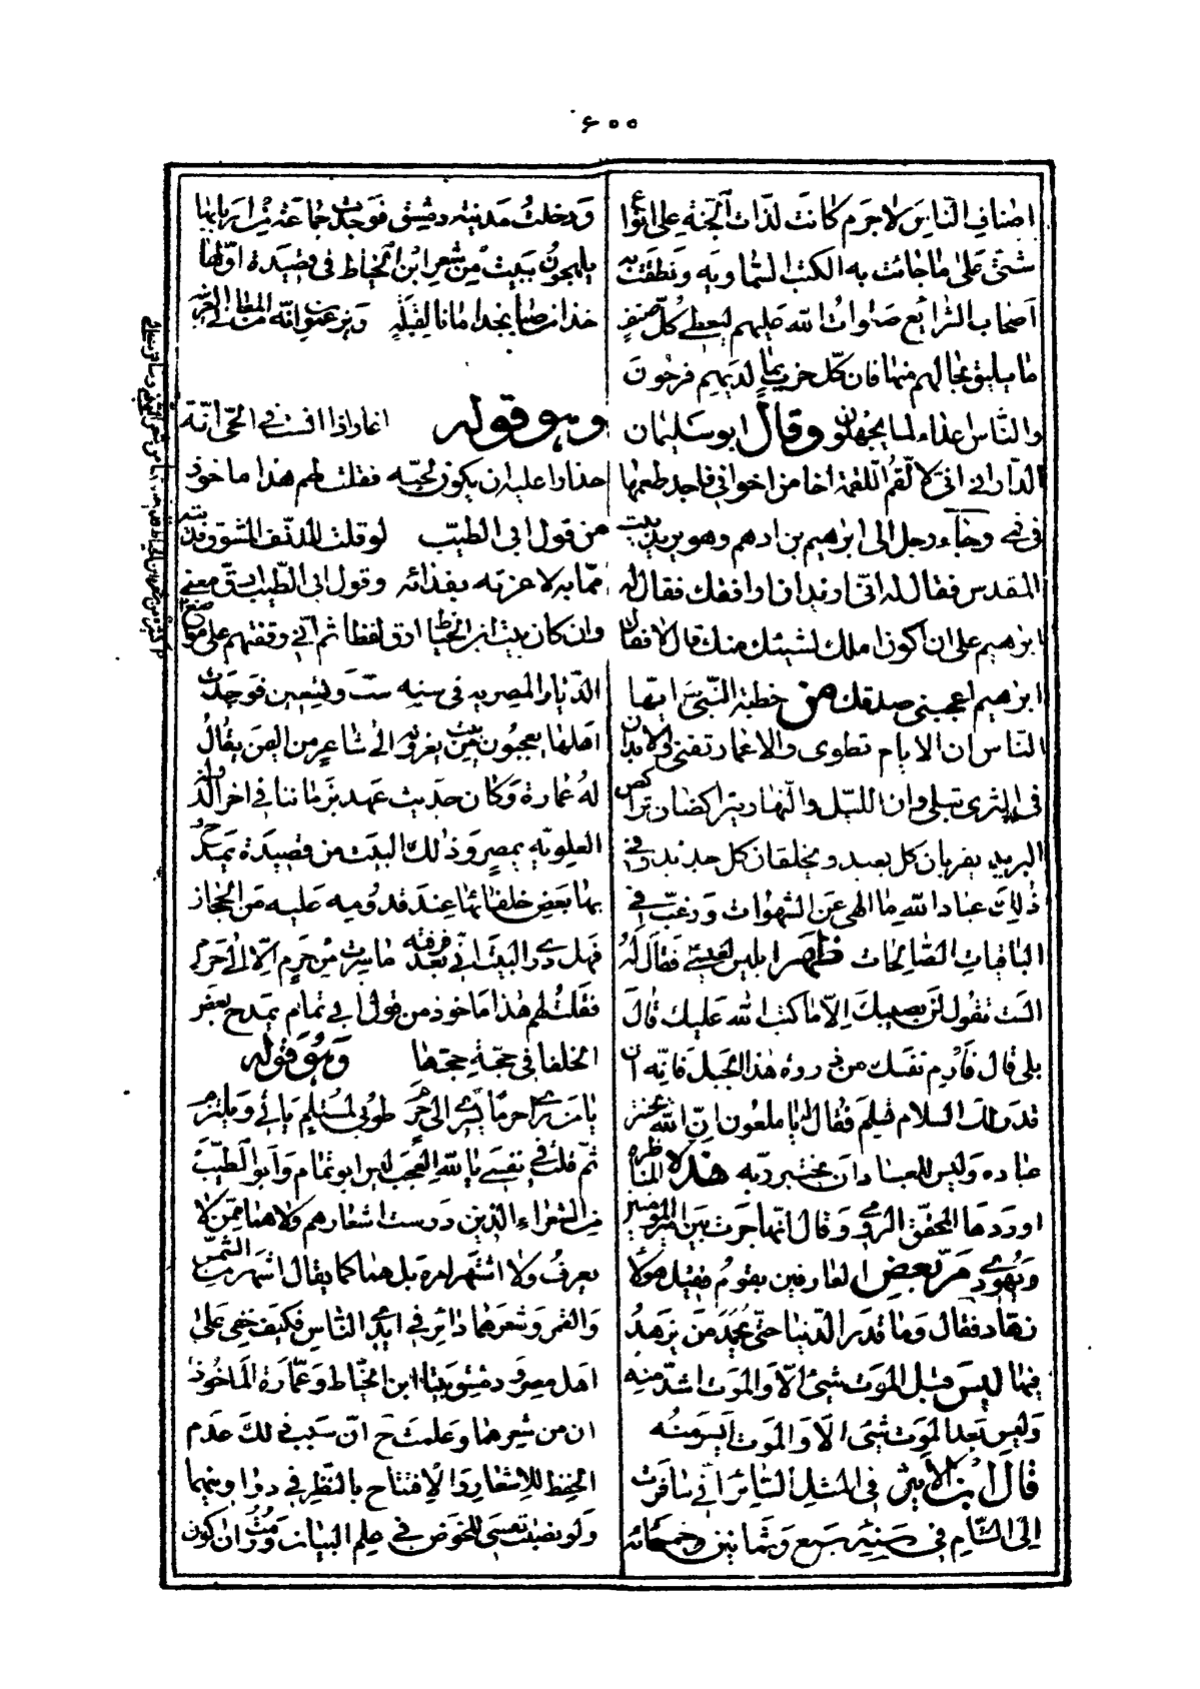 ۶۰۰
اصناف الناس لاجرم كانت لذات الجنة على انواع
شتى على ما جائت به الكتب السماويه ونطقت به
اصحاب الشرائع صلوات الله عليهم ليعطى كل صنف
ما يليق بحالهم منها فان كل حزب بما لديهم فرحون
والناس اعداء لما يجهلون وقال ابو سليمان
الدارانى انى لالقم اللقمة اخا من اخوانى فاجد طعمها
فى فمى وجاء رجل الى ابرهيم بن ادهم وهو يريد بيت
المقدس فقال له انى اريد ان ارافقك فقال له
ابرهيم على ان اكون املك لشيئك منك قال لا فقال
ابرهيم اعجبنى صدقك من خطبة النبى ص ايها
الناس ان الايام تطوى والاعمار تفنى والابدان
فى الثرى تبلى وان الليل والنهار يتراكضان تراكض
البريد يقربان كل بعيد ويخلقان كل جديد وفى
ذلك عباد الله ما الهى عن الشهوات ورغب فى
الباقيات الصالحات ظهر ابليس لعيسى فقال له
الست تقول لن يصيبك الا ما كتب الله عليك قال
بلى قال فارم نفسك من ذروة هذا الجبل فانه ان
قدر لك السلام تسلم فقال له يا ملعون ان الله يختبر
عباده وليس للعباد ان يختبر ربه هذه المناظرة
اوردها المحقق الرومى وقال انها جرت بين امير المومنين
ويهودى مر بعض العارفين بقوم فقيل هؤلاء
زهاد فقال وما قدر الدنيا حتى يحمد من يزهد
فيها ليس قبل الموت شيئ الا والموت اشد منه
وليس بعد الموت شيئ الا والموت ايسر منه
قال ابن الاثير فى المثل السائر انى سافرت
الى الشام فى سنة سبع وثمانين وخمسمائة
ودخلت مدينة دمشق فوجدت جماعة من اربابها
يلهجون ببيت من شعر ابن الخياط فى قصيدة اولها
خذا من صبا نجد امانا لقلبه ويزعمون انه من المعانى الغريبة
وهو قوله اغار اذا انست فى الحى انة
حذارا عليه ان يكون لحبه فقلت لهم هذا ماخوذ
من قول ابى الطيب لو قلت للدنف المشوق فديته
مما به لاغرته بفدائه وقول ابى الطيب ادق معنى
وان كان بيت ابن الخياط ارق لفظا ثم انى وقفتهم على مواضع
الديار المصريه فى سنه ست وتسعين فوجدت
اهلها يعجبون ببيت يعزونه الى شاعر من اليمن يقال
له عمارة وكان حديث عهد بزماننا فى اخر الدولة
العلويه بمصر وذلك البيت من قصيدة يمدح
بها بعض خلفائها عند قدومه عليه من الحجاز
فهل درى البيت انى بعد فرقته ما سرت من حرم الا الى حرم
فقلت لهم هذا ماخوذ من قول ابى تمام يمدح بعض
الخلفا فى حجة حجها وهو قوله
يا من راى حرما يسرى الى حرم طوبى لمستلم ياتى وملتزم
ثم قلت فى نفسى يا لله العجب ليس ابو تمام وابو الطيب
من الشعراء الذين درست اشعارهم ولا هما ممن لا
يعرف ولا اشتهر امره بل هما كما يقال اشهر من الشمس
والقمر وشعرهما دائر فى ايدى الناس فكيف خفى على
اهل مصر ودمشق بيتا ابن الخياط وعمارة الماخوذ
ان من شعرهما وعلمت ح ان سبب ذلك عدم
الحفظ للاشعار والاقتناع بالنظر فى دواوينهما
ولو نصبت نفسى للخوض فى علم البيان ورمت ان اكون